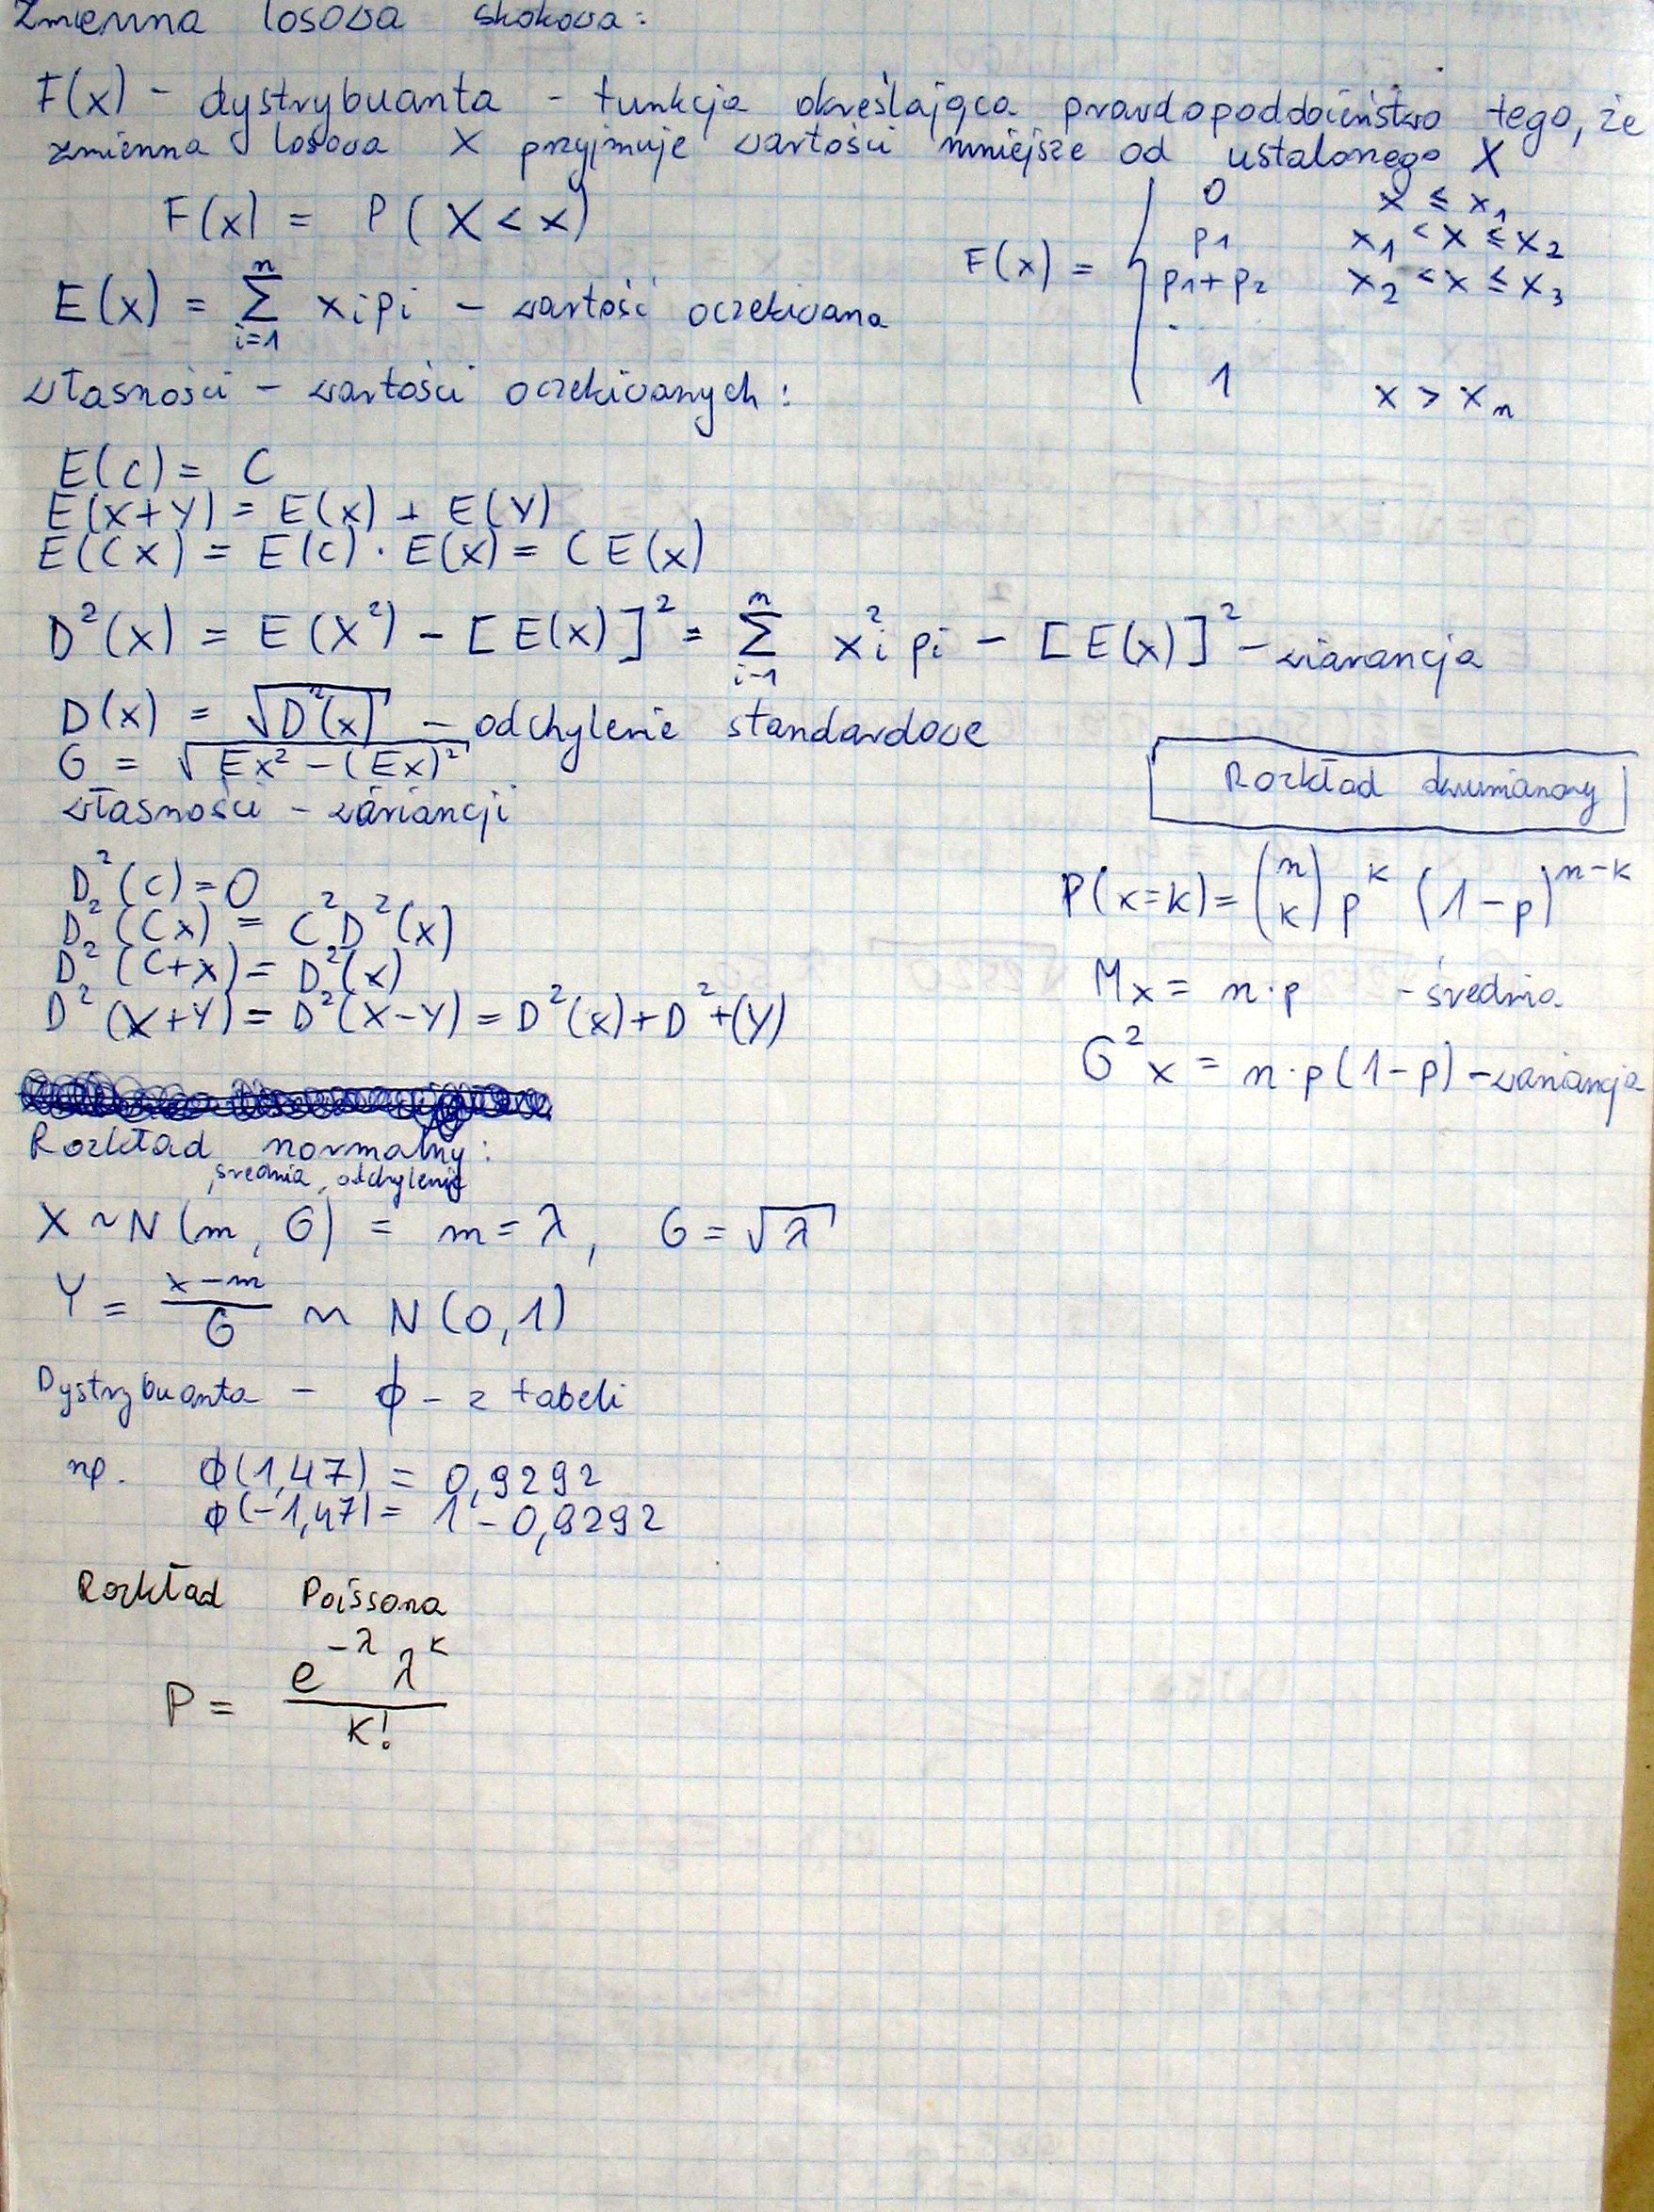 Zmienna losowa skokowa:
F(x) - dystrybuanta - funkcja określająca prawdopoddobieństwo tego, że
zmienna losowa X przyjmuje wartości mniejsze od ustalonego X
F(x) = P(X < x)
F(x) = { 0 x ≤ x₁
p₁ x₁ < x ≤ x₂
p₁+p₂ x₂ < x ≤ x₃
.
1 x > xₙ
E(x) = Σ_{i=1}^{n} xᵢpᵢ - wartość oczekiwana
własności - wartości oczekiwanych:
E(c) = C
E(X+Y) = E(x) + E(Y)
E(Cx) = E(c) · E(x) = C E(x)
D²(x) = E(X²) - [E(x)]² = Σ_{i-1}^{n} x²ᵢ pᵢ - [E(x)]² - wiarancja
D(x) = √D²(x) - odchylenie standardowe
G = √Ex² - (Ex)²
własności - wariancji
D²(c) = 0
D²(Cx) = C²D²(x)
D²(C+x) = D²(x)
D²(X+Y) = D²(X-Y) = D²(x) + D²+(Y)
Rozkład dwumianowy
P(x=k) = (n k) p^k (1-p)^{n-k}
Mx = n·p - średnia
G²x = n·p(1-p) - wariancja
Rozkład normalny:
średnia, odchylenie
X ~ N(m, G) = m = λ, G = √λ
Y = (x-m)/G ~ N(0,1)
Dystrybuanta - ϕ - z tabeli
np. ϕ(1,47) = 0,9292
ϕ(-1,47) = 1 - 0,9292
Rozkład Poissona
P = (e^{-λ} λ^k)/k!